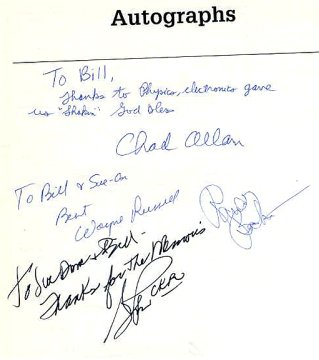 Autographs
To Bill,
Thanks to Physics, electronics gave
us "Shakin" God Bless
Chad Allan
To Bill & Sue-On
Best
Wayne Russell
To Sue Don & Bill -
Thanks for the Memories